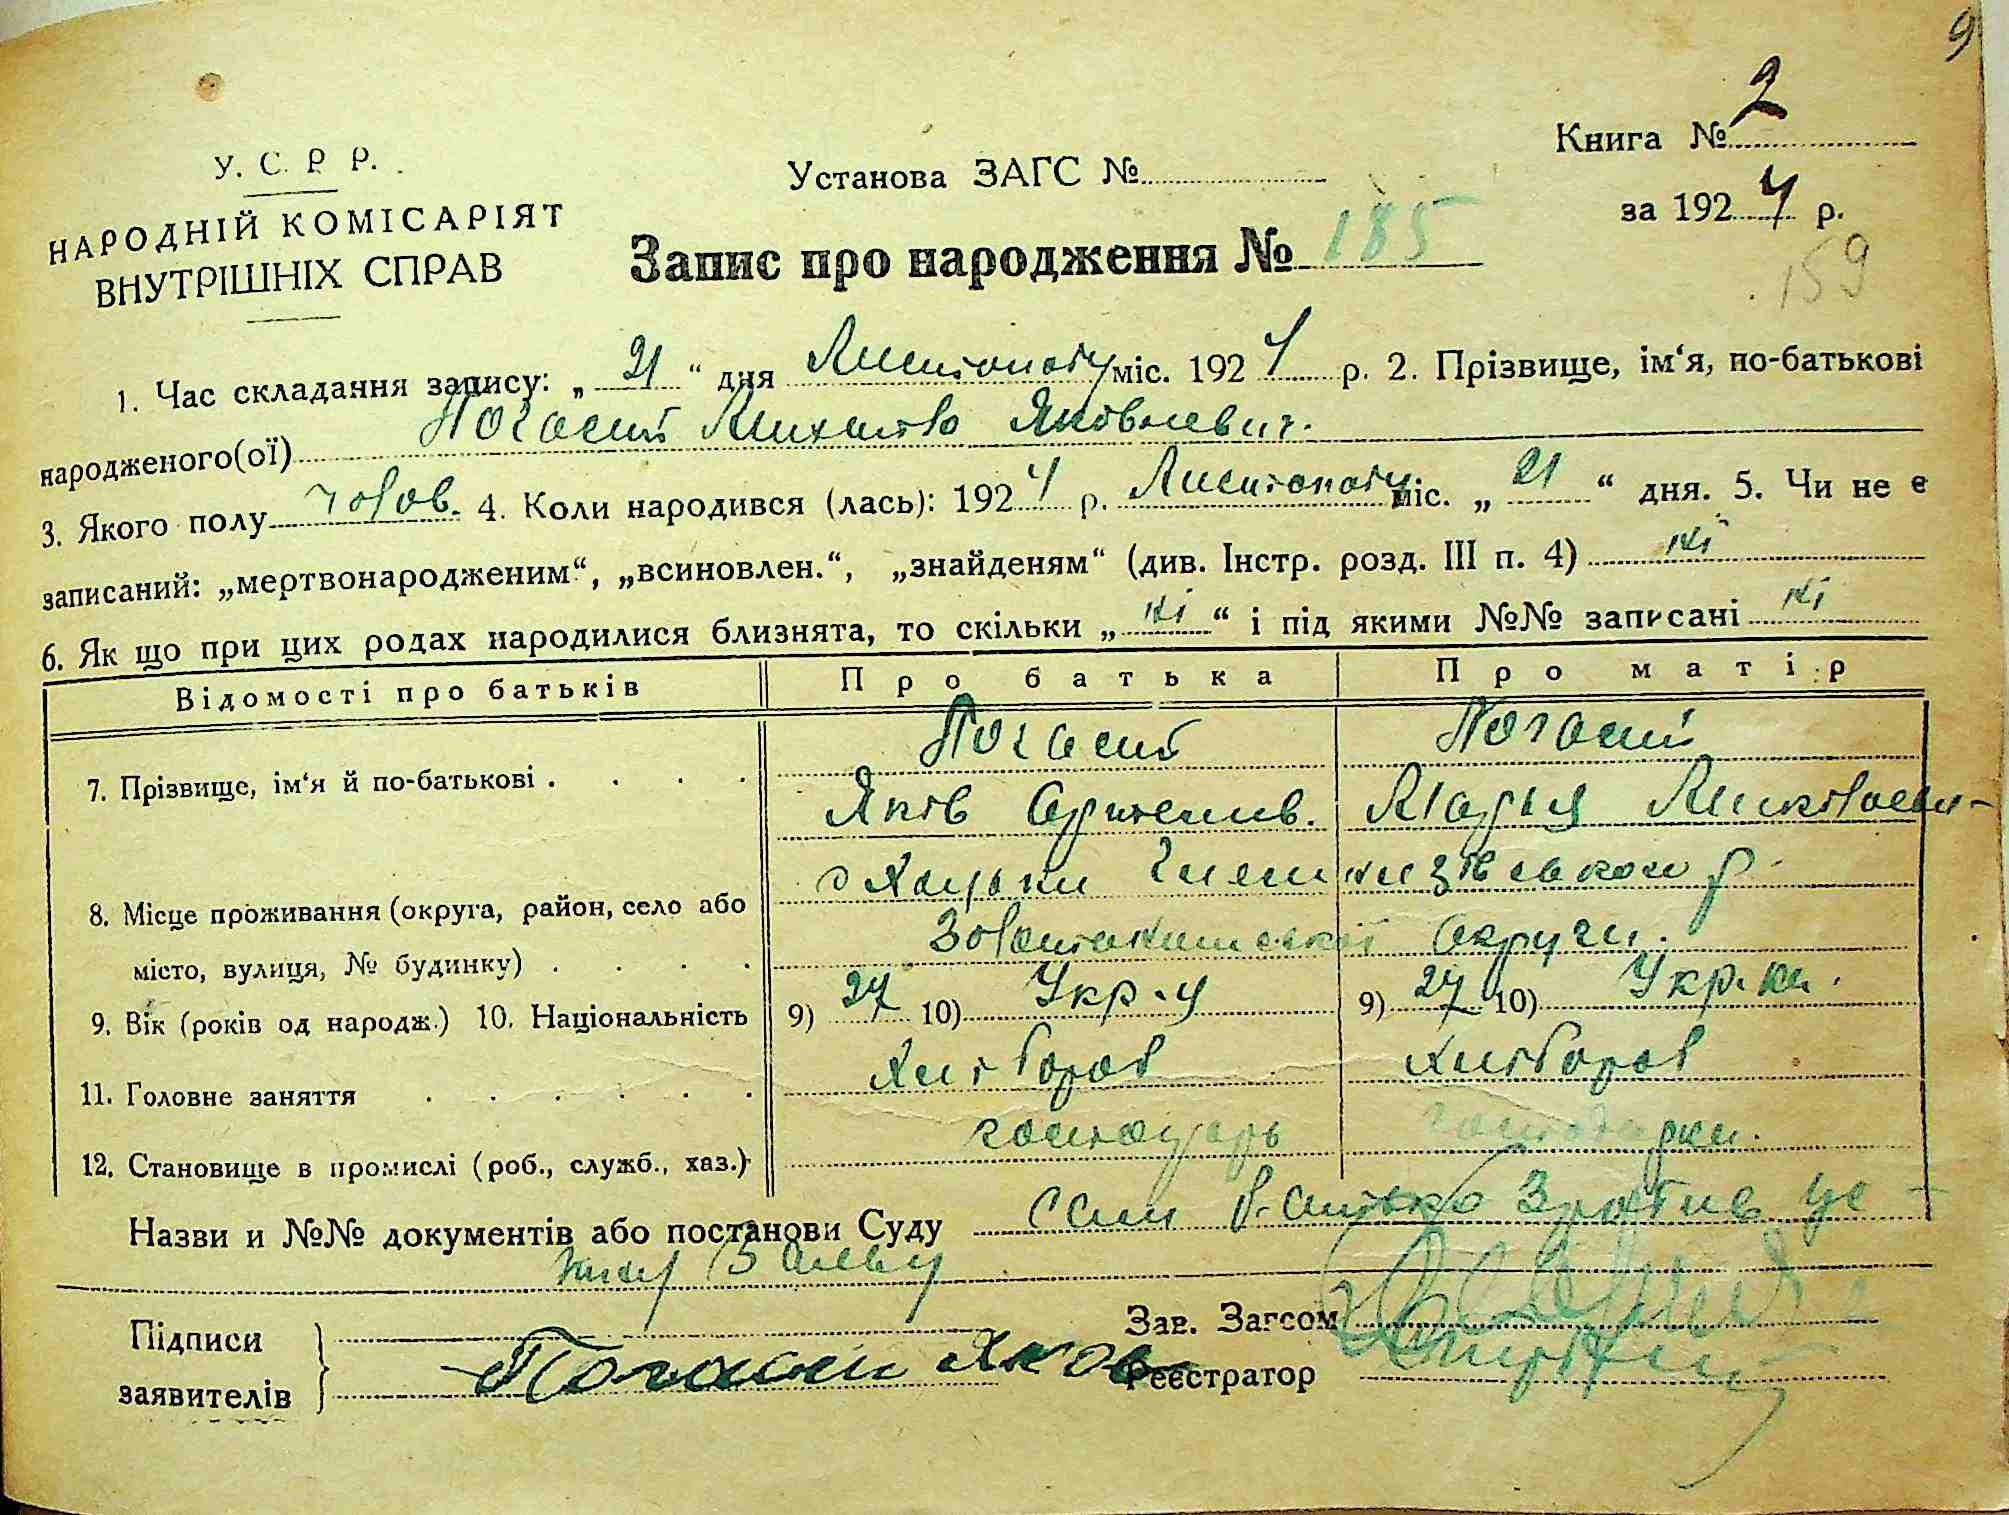 9
Книга № 2
У. С. Р. Р.
Установа ЗАГС №
за 1924 р.
НАРОДНІЙ КОМІСАРІЯТ
ВНУТРІШНІХ СПРАВ
Запис про народження № 185
159
1. Час складання запису: „ 21 “ дня Листопаду міс. 1924 р. 2. Прізвище, ім‘я, по-батькові
народженого(ої) Погасий Михайло Яковлевич.
3. Якого полу чолов. 4. Коли народився (лась): 1924 р. Листопаду міс. „ 21 “ дня. 5. Чи не є
записаний: „мертвонародженим“, „всиновлен.“, „знайденям“ (див. Інстр. розд. III п. 4) ні
6. Як що при цих родах народилися близнята, то скільки „ ні “ і під якими №№ записані ні
Відомості про батьків Про батька Про матір
Погасий Погасий
7. Прізвище, ім‘я й по-батькові . . . .
Яків Марья Миколаевн-
8. Місце проживання (округа, район, село або
місто, вулиця, № будинку) . . . .
Золотоношської округи.
9. Вік (років од народж.) 10. Національність 9) 27 10) Укр-ц 9) 27 10) Укр-ка.
11. Головне заняття . . . . . . Хлібороб Хлібороб
12. Становище в промислі (роб., служб., хаз.) господарь господарка.
Назви и №№ документів або постанови Суду сам батько зробив ус-
тну заяву
Підписи
заявителів
Погасий Яков
Зав. Загсом
Реєстратор